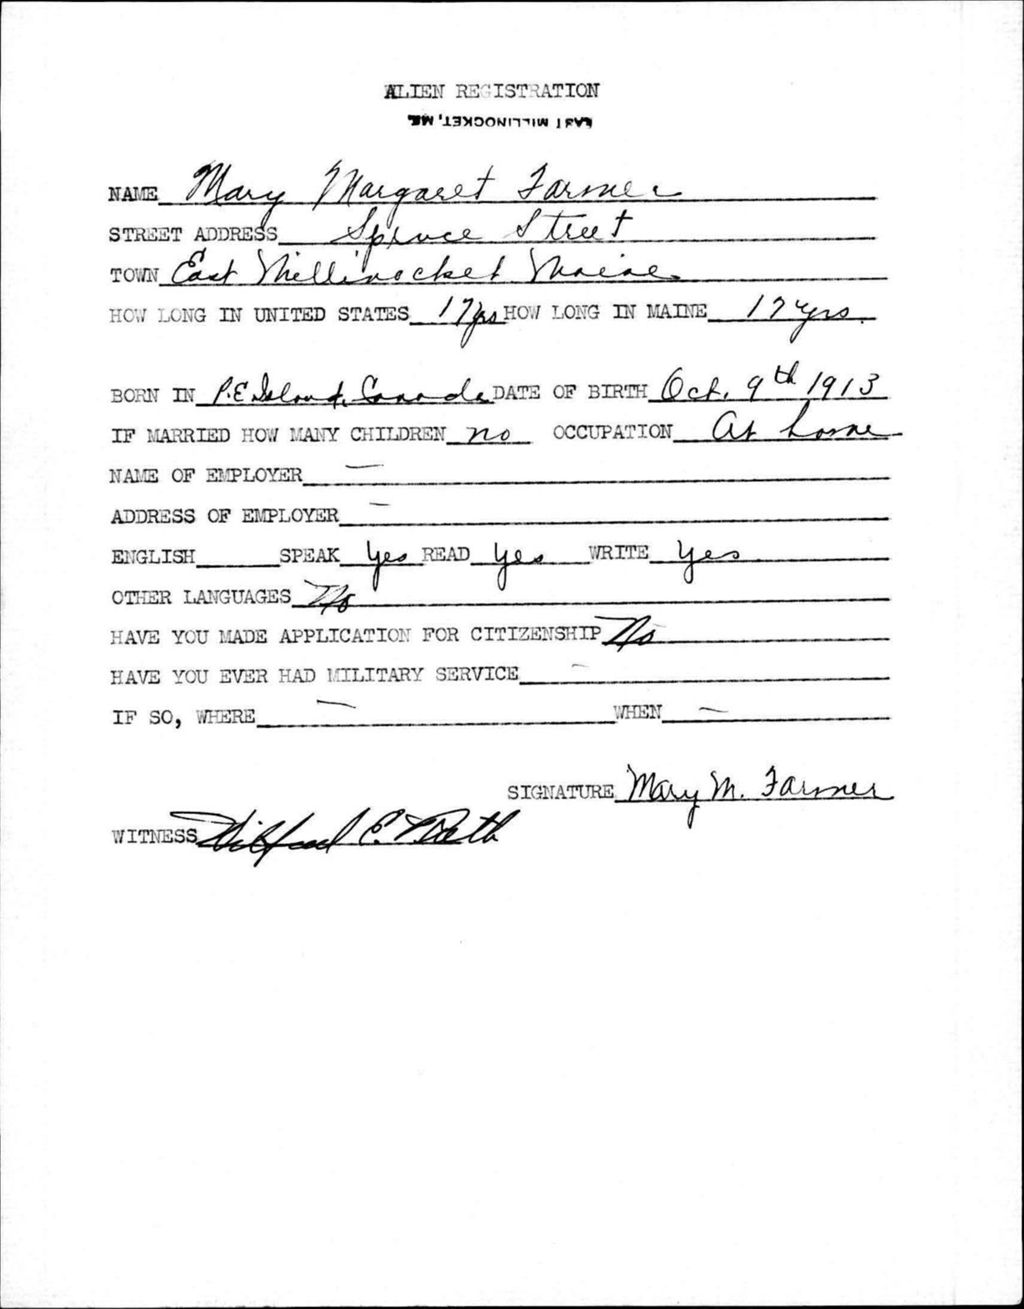 ALIEN REGISTRATION
EAST MILLINOCKET, ME.
NAME Mary Margaret Farmer
STREET ADDRESS Spruce Street
TOWN East Millinocket Maine
HOW LONG IN UNITED STATES 17 yrs HOW LONG IN MAINE 17 yrs.
BORN IN P.E. Island, Canada DATE OF BIRTH Oct. 9th 1913
IF MARRIED HOW MANY CHILDREN no OCCUPATION At home
NAME OF EMPLOYER —
ADDRESS OF EMPLOYER —
ENGLISH SPEAK Yes READ Yes WRITE Yes
OTHER LANGUAGES No
HAVE YOU MADE APPLICATION FOR CITIZENSHIP No
HAVE YOU EVER HAD MILITARY SERVICE —
IF SO, WHERE — WHEN —
SIGNATURE Mary M. Farmer
WITNESS Wilfred E.